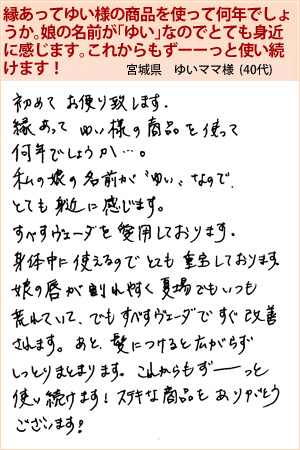 縁あってゆい様の商品を使って何年でしょ
うか。娘の名前が「ゆい」なのでとても身近
に感じます。これからもずーーっと使い続
けます！
宮城県　ゆいママ様（40代）
初めて お便り致します.
縁あって ゆい様の商品を使って
何年でしょうか…。
私の娘の名前が〝ゆい〟なので、
とても 身近に 感じます。
すべすべヴェーダを 愛用しております.
身体中に 使えるので とても 重宝しております
娘の唇が 割れやすく 夏場でもいつも
荒れていて、でも すべすべヴェーダで すぐ 改善
されます。あと、髪につけると広がらず
しっとりまとまります。これからも ずーーっと
使い続けます！ステキな商品を ありがとう
ございます！